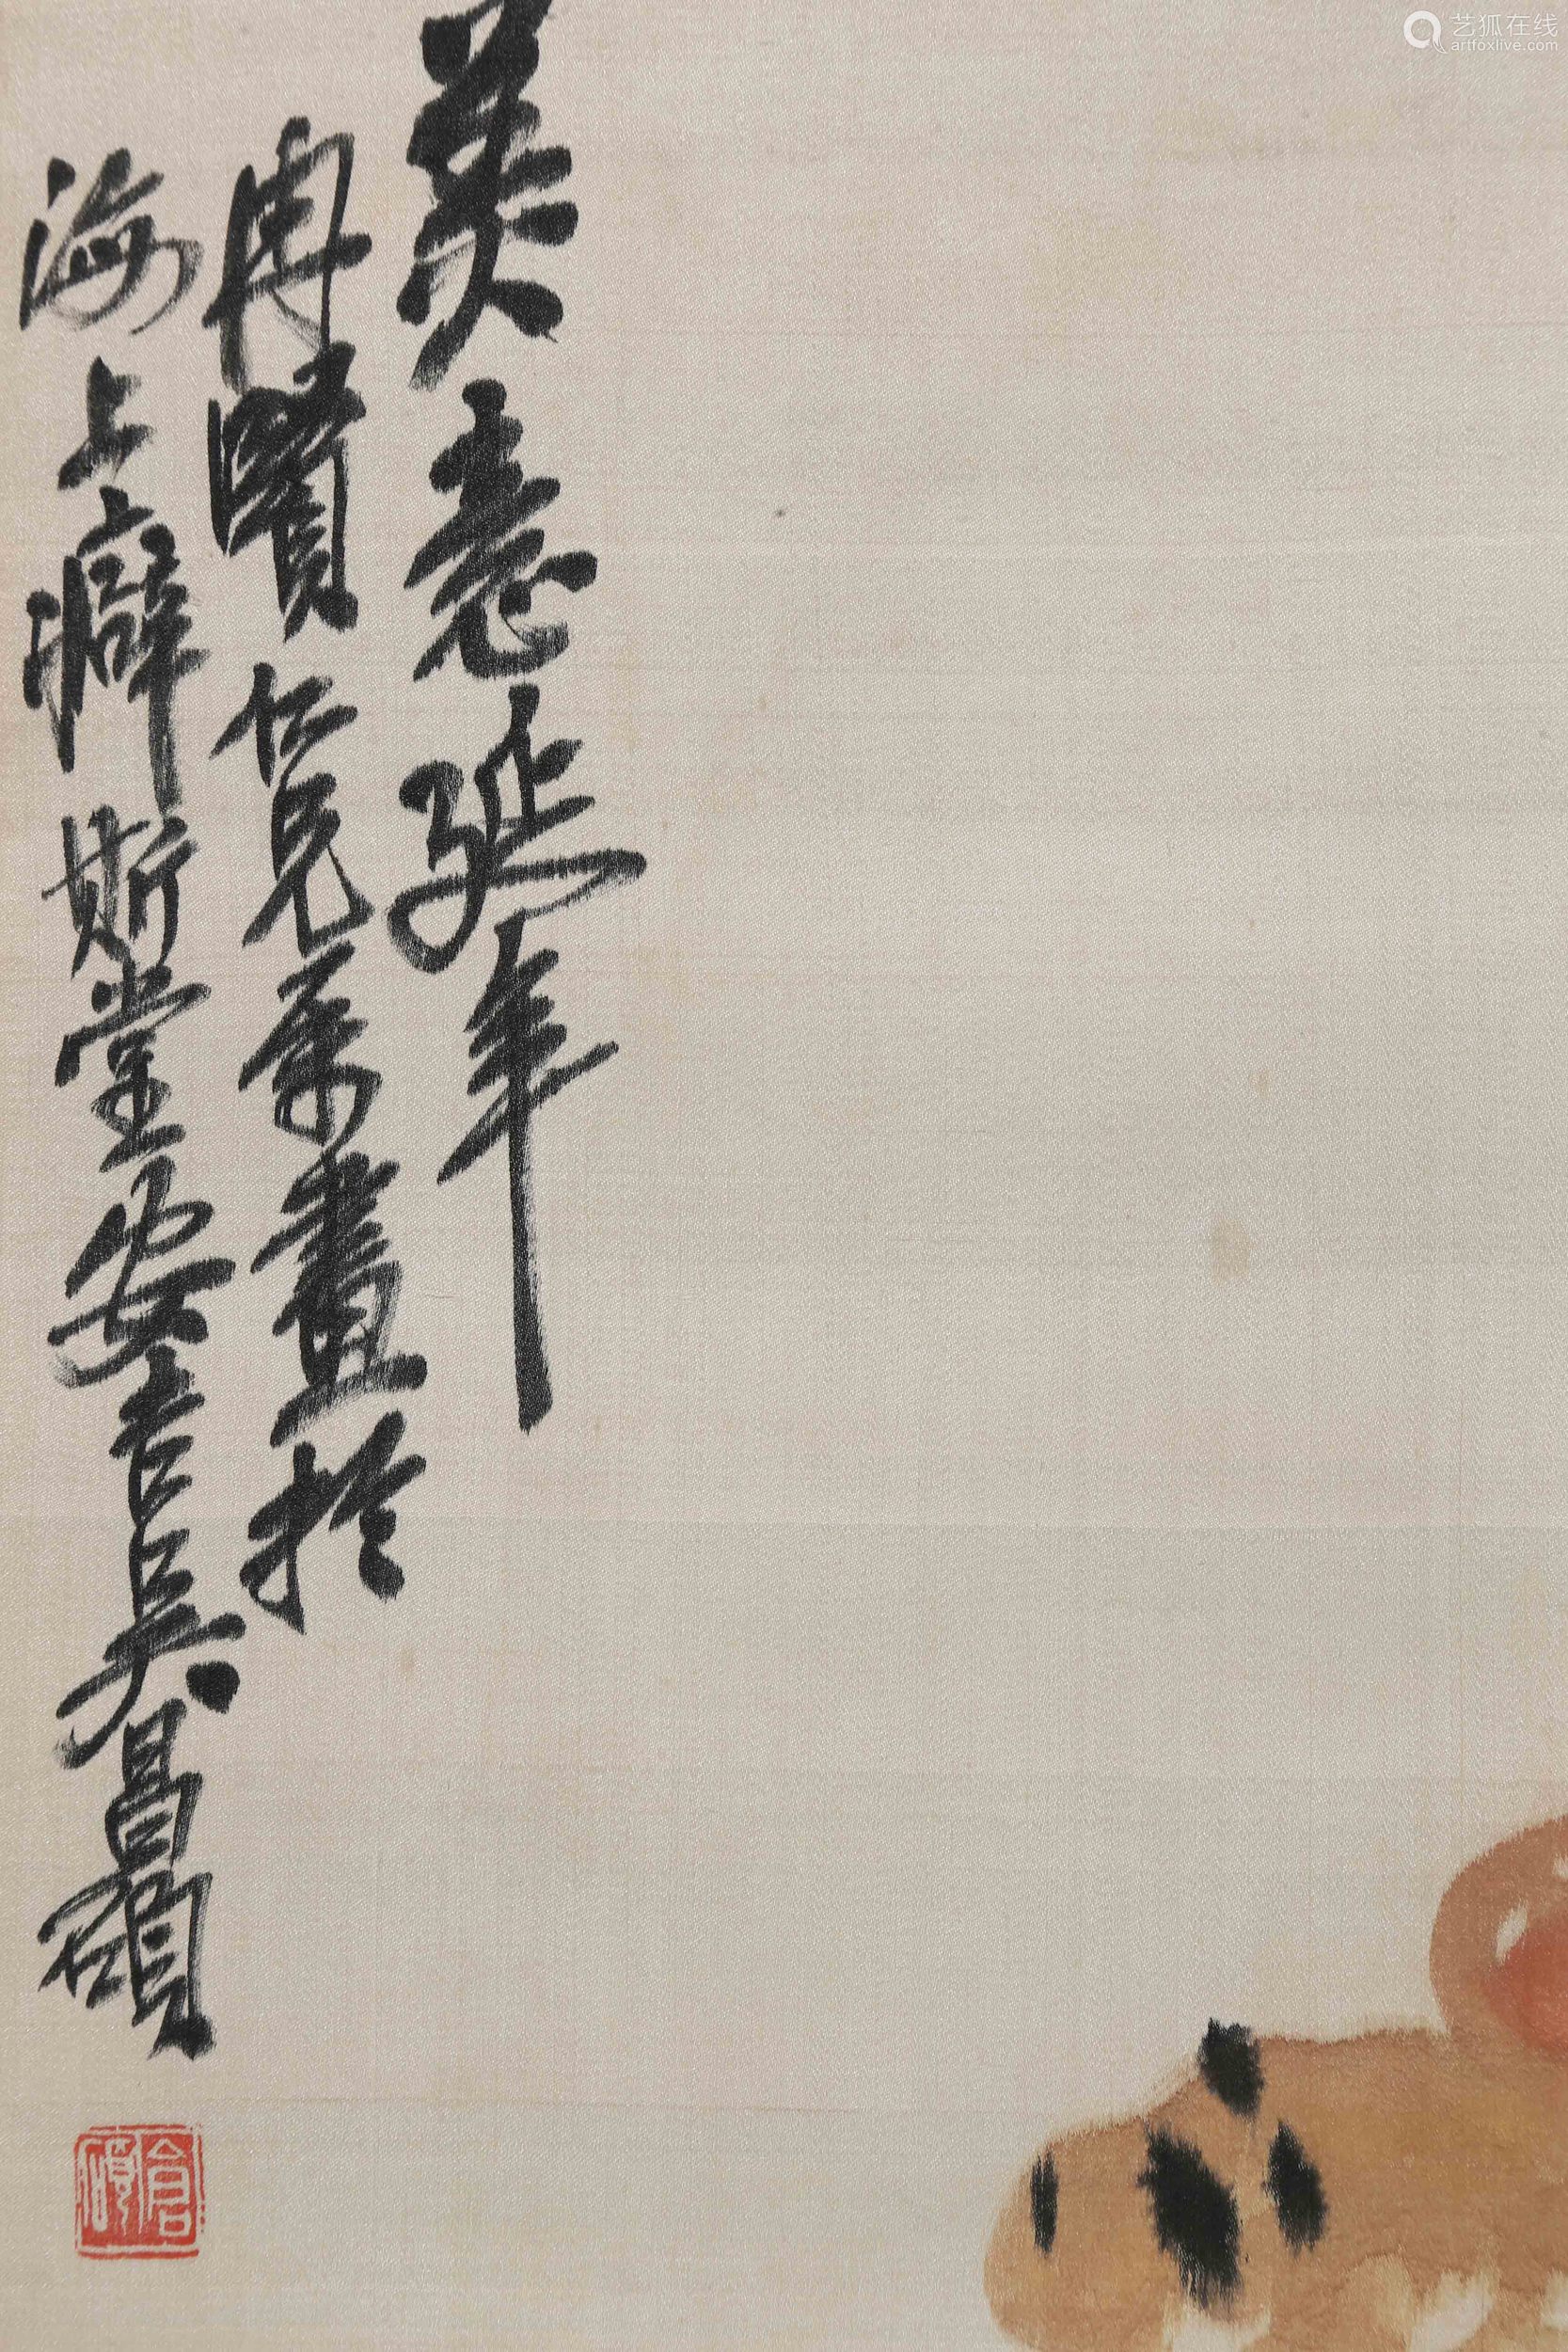 美意延年
冉賢仁兄屬畫於
海上癖斯堂安吉吳昌碩
倉碩
艺狐在线
artfoxlive.com